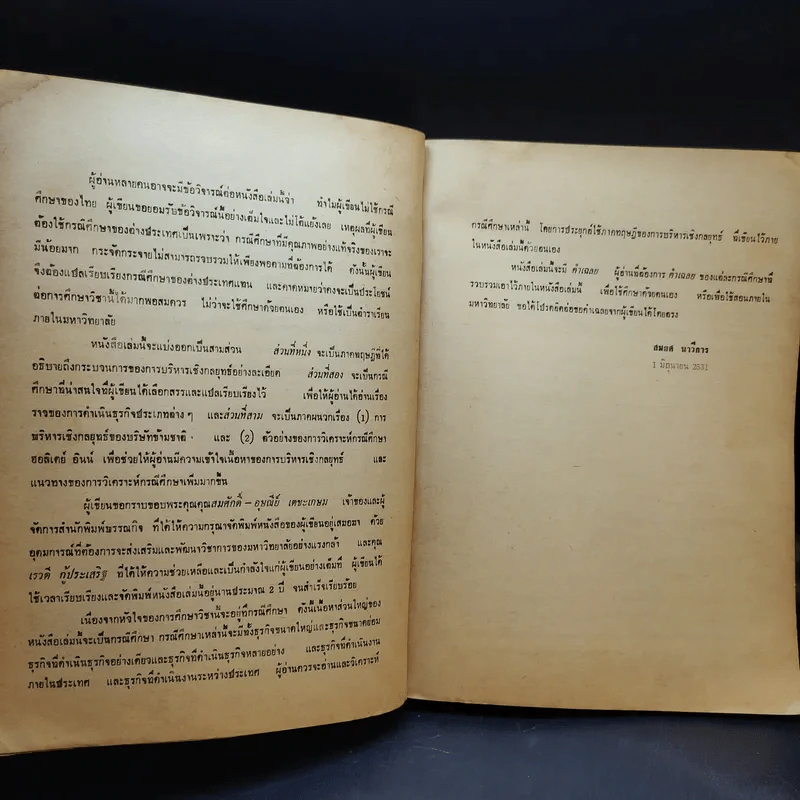 ผู้อ่านหลายคนอาจจะมีข้อวิจารณ์ต่อหนังสือเล่มนี้ว่า ทำไมผู้เขียนไม่ใช้กรณี
ศึกษาของไทย ผู้เขียนขอยอมรับข้อวิจารณ์นี้อย่างเต็มใจและไม่โต้แย้งเลย เหตุผลที่ผู้เขียน
ต้องใช้กรณีศึกษาของต่างประเทศเป็นเพราะว่า กรณีศึกษาที่มีคุณภาพอย่างแท้จริงของเราจะ
มีน้อยมาก กระจัดกระจายไม่สามารถรวบรวมให้เพียงพอตามที่ต้องการได้ ดังนั้นผู้เขียน
จึงต้องแปลเรียบเรียงกรณีศึกษาของต่างประเทศแทน และคาดหมายว่าคงจะเป็นประโยชน์
ต่อการศึกษาวิชานี้ได้มากพอสมควร ไม่ว่าจะใช้ศึกษาด้วยตนเอง หรือใช้เป็นตำราเรียน
ภายในมหาวิทยาลัย
หนังสือเล่มนี้จะแบ่งออกเป็นสามส่วน ส่วนที่หนึ่ง จะเป็นภาคทฤษฎีที่ได้
อธิบายถึงกระบวนการของการบริหารเชิงกลยุทธ์อย่างละเอียด ส่วนที่สอง จะเป็นกรณี
ศึกษาที่น่าสนใจที่ผู้เขียนได้เลือกสรรและแปลเรียบเรียงไว้ เพื่อให้ผู้อ่านได้อ่านเรื่อง
ราวของการดำเนินธุรกิจประเภทต่าง ๆ และส่วนที่สาม จะเป็นภาคผนวกเรื่อง (1) การ
บริหารเชิงกลยุทธ์ของบริษัทข้ามชาติ และ (2) ตัวอย่างของการวิเคราะห์กรณีศึกษา
ฮอลิเดย์ อินน์ เพื่อช่วยให้ผู้อ่านมีความเข้าใจเนื้อหาของการบริหารเชิงกลยุทธ์ และ
แนวทางของการวิเคราะห์กรณีศึกษาเพิ่มมากขึ้น
ผู้เขียนขอกราบขอบพระคุณคุณสมศักดิ์ – อุษณีย์ เตชะเกษม เจ้าของและผู้
จัดการสำนักพิมพ์บรรณกิจ ที่ได้ให้ความกรุณาจัดพิมพ์หนังสือของผู้เขียนอยู่เสมอมา ด้วย
อุดมการณ์ที่ต้องการจะส่งเสริมและพัฒนาวิชาการของมหาวิทยาลัยอย่างแรงกล้า และคุณ
เรวดี กู้ประเสริฐ ที่ได้ให้ความช่วยเหลือและเป็นกำลังใจแก่ผู้เขียนอย่างเต็มที่ ผู้เขียนได้
ใช้เวลาเรียบเรียงและจัดพิมพ์หนังสือเล่มนี้อยู่นานประมาณ 2 ปี จนสำเร็จเรียบร้อย
เนื่องจากหัวใจของการศึกษาวิชานี้จะอยู่ที่กรณีศึกษา ดังนี้เนื้อหาส่วนใหญ่ของ
หนังสือเล่มนี้จะเป็นกรณีศึกษา กรณีศึกษาเหล่านี้จะมีทั้งธุรกิจขนาดใหญ่และธุรกิจขนาดย่อม
ธุรกิจที่ดำเนินธุรกิจอย่างเดียวและธุรกิจที่ดำเนินธุรกิจหลายอย่าง และธุรกิจที่ดำเนินงาน
ภายในประเทศ และธุรกิจที่ดำเนินงานระหว่างประเทศ ผู้อ่านควรจะอ่านและวิเคราะห์
กรณีศึกษาเหล่านี้ โดยการประยุกต์ใช้ภาคทฤษฎีของการบริหารเชิงกลยุทธ์ ที่เขียนไว้ภาย
ในหนังสือเล่มนี้ด้วยตนเอง
หนังสือเล่มนี้จะมี คำเฉลย ผู้อ่านที่ต้องการ คำเฉลย ของแต่ละกรณีศึกษาที่
รวบรวมเอาไว้ภายในหนังสือเล่มนี้ เพื่อใช้ศึกษาด้วยตนเอง หรือเพื่อใช้สอนภายใน
มหาวิทยาลัย ขอได้โปรดติดต่อขอคำเฉลยจากผู้เขียนได้โดยตรง
สมยศ นาวีการ
1 มิถุนายน 2531